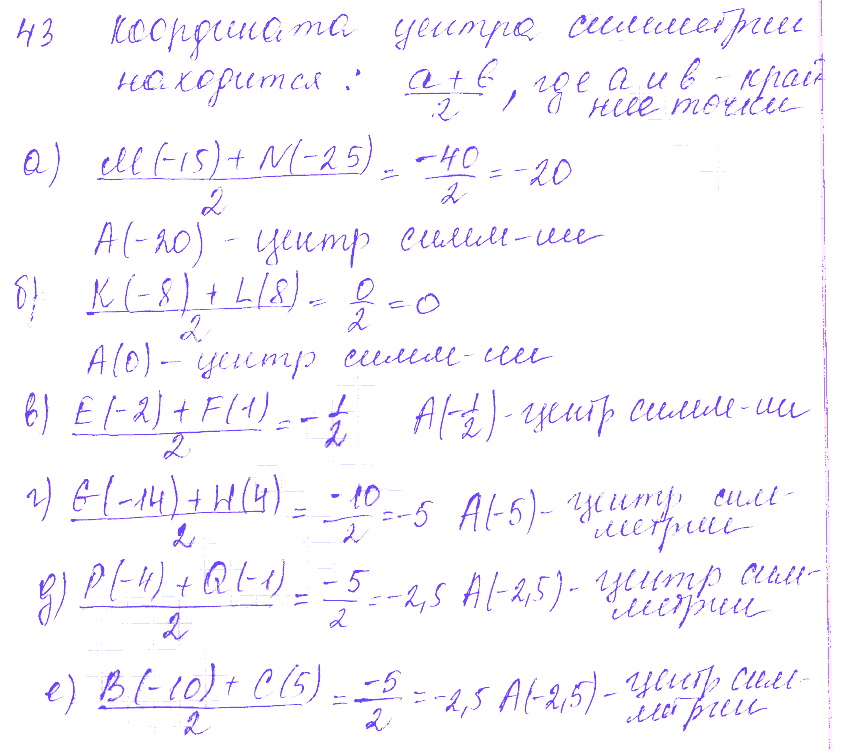 43 Координата центра симметрии
находится: (a + b)/2, где a и b - край-
ние точки
а) (M(-15) + N(-25))/2 = -40/2 = -20
A(-20) - центр симм-ии
б) (K(-8) + L(8))/2 = 0/2 = 0
A(0) - центр симм-ии
в) (E(-2) + F(1))/2 = -1/2 A(-1/2) - центр симм-ии
г) (G(-14) + H(4))/2 = -10/2 = -5 A(-5) - центр сим-
метрии
д) (P(-4) + Q(-1))/2 = -5/2 = -2,5 A(-2,5) - центр сим-
метрии
е) (B(-10) + C(5))/2 = -5/2 = -2,5 A(-2,5) - центр сим-
метрии